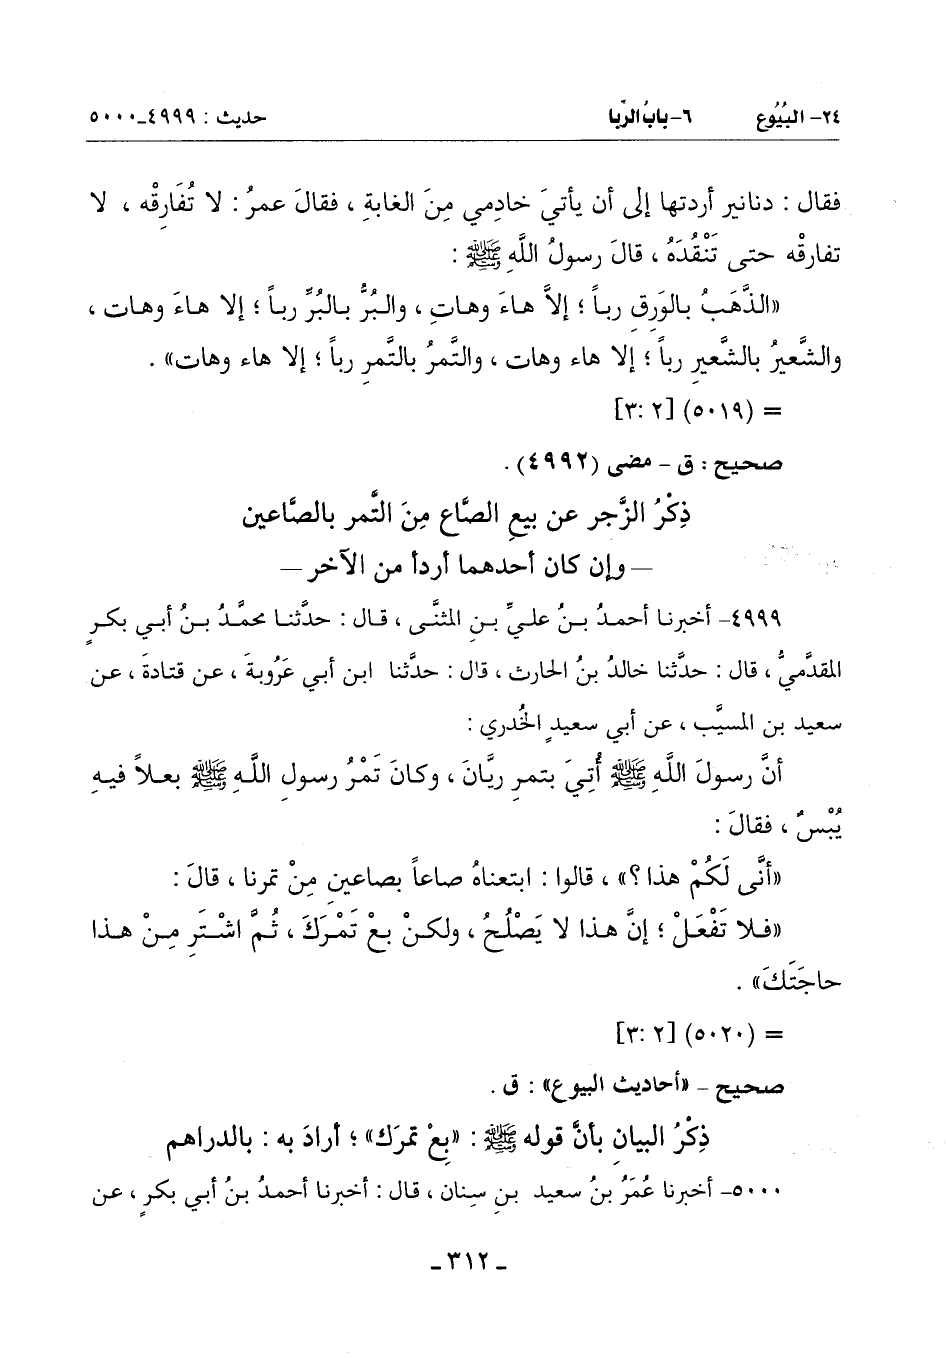 ٢٤- البُيُوع ٦- بابُ الرِّبا حديث : ٤٩٩٩-٥٠٠٠
فقال : دنانير أردتها إلى أن يأتيَ خادِمي مِنَ الغابةِ ، فقالَ عمرُ : لا تُفَارِقْه ، لا
تفارقْه حتى تَنْقُدَهُ ، قالَ رسولُ اللَّهِ ﷺ :
«الذَّهَبُ بالوَرِقِ رباً ؛ إلاَّ هاءَ وهاتِ ، والبُرُّ بالبُرِّ رباً ؛ إلا هاءَ وهات ،
والشَّعيرُ بالشَّعيرِ رباً ؛ إلا هاء وهات ، والتَّمرُ بالتَّمرِ رباً ؛ إلا هاء وهات» .
= (٥٠١٩) [٢ :٣]
صحيح : ق - مضى (٤٩٩٢) .
ذِكْرُ الزَّجر عن بيعِ الصَّاع مِنَ التَّمر بالصَّاعين
– وإن كان أحدهما أردأ من الآخر –
٤٩٩٩- أخبرنا أحمدُ بـنُ عليِّ بـنِ المثنَّى ، قـال : حدَّثنـا محمَّدُ بـنُ أبـي بكـرٍ
المقدَّميُّ ، قال : حدَّثنا خالدُ بنُ الحارث ، قال : حدَّثنا ابن أبي عَرُوبةَ ، عن قتادةَ ، عن
سعيد بن المسيَّب ، عن أبي سعيدٍ الخُدري :
أنَّ رسولَ اللَّهِ ﷺ أُتِيَ بتمرِ ريَّانَ ، وكانَ تَمْرُ رسولِ اللَّهِ ﷺ بعلاً فيهِ
يُبْسٌ ، فقالَ :
«أنَّى لَكُمْ هذا ؟» ، قالوا : ابتعناهُ صاعاً بصاعينِ مِنْ تمرنا ، قالَ :
«فلا تَفْعَلْ ؛ إنَّ هذا لا يَصْلُحُ ، ولكنْ بعْ تَمْرَكَ ، ثُمَّ اشْتَرِ مِنْ هذا
حاجَتَكَ» .
= (٥٠٢٠) [٢ :٣]
صحيح - «أحاديث البيوع» : ق .
ذِكْرُ البيانِ بأنَّ قوله ﷺ : «بِعْ تمرَك» ؛ أرادَ به : بالدراهم
٥٠٠٠- أخبرنا عُمَرُ بنُ سعيد بنِ سِنان ، قال : أخبرنا أحمدُ بنُ أبي بكرٍ ، عن
- ٣١٢ -